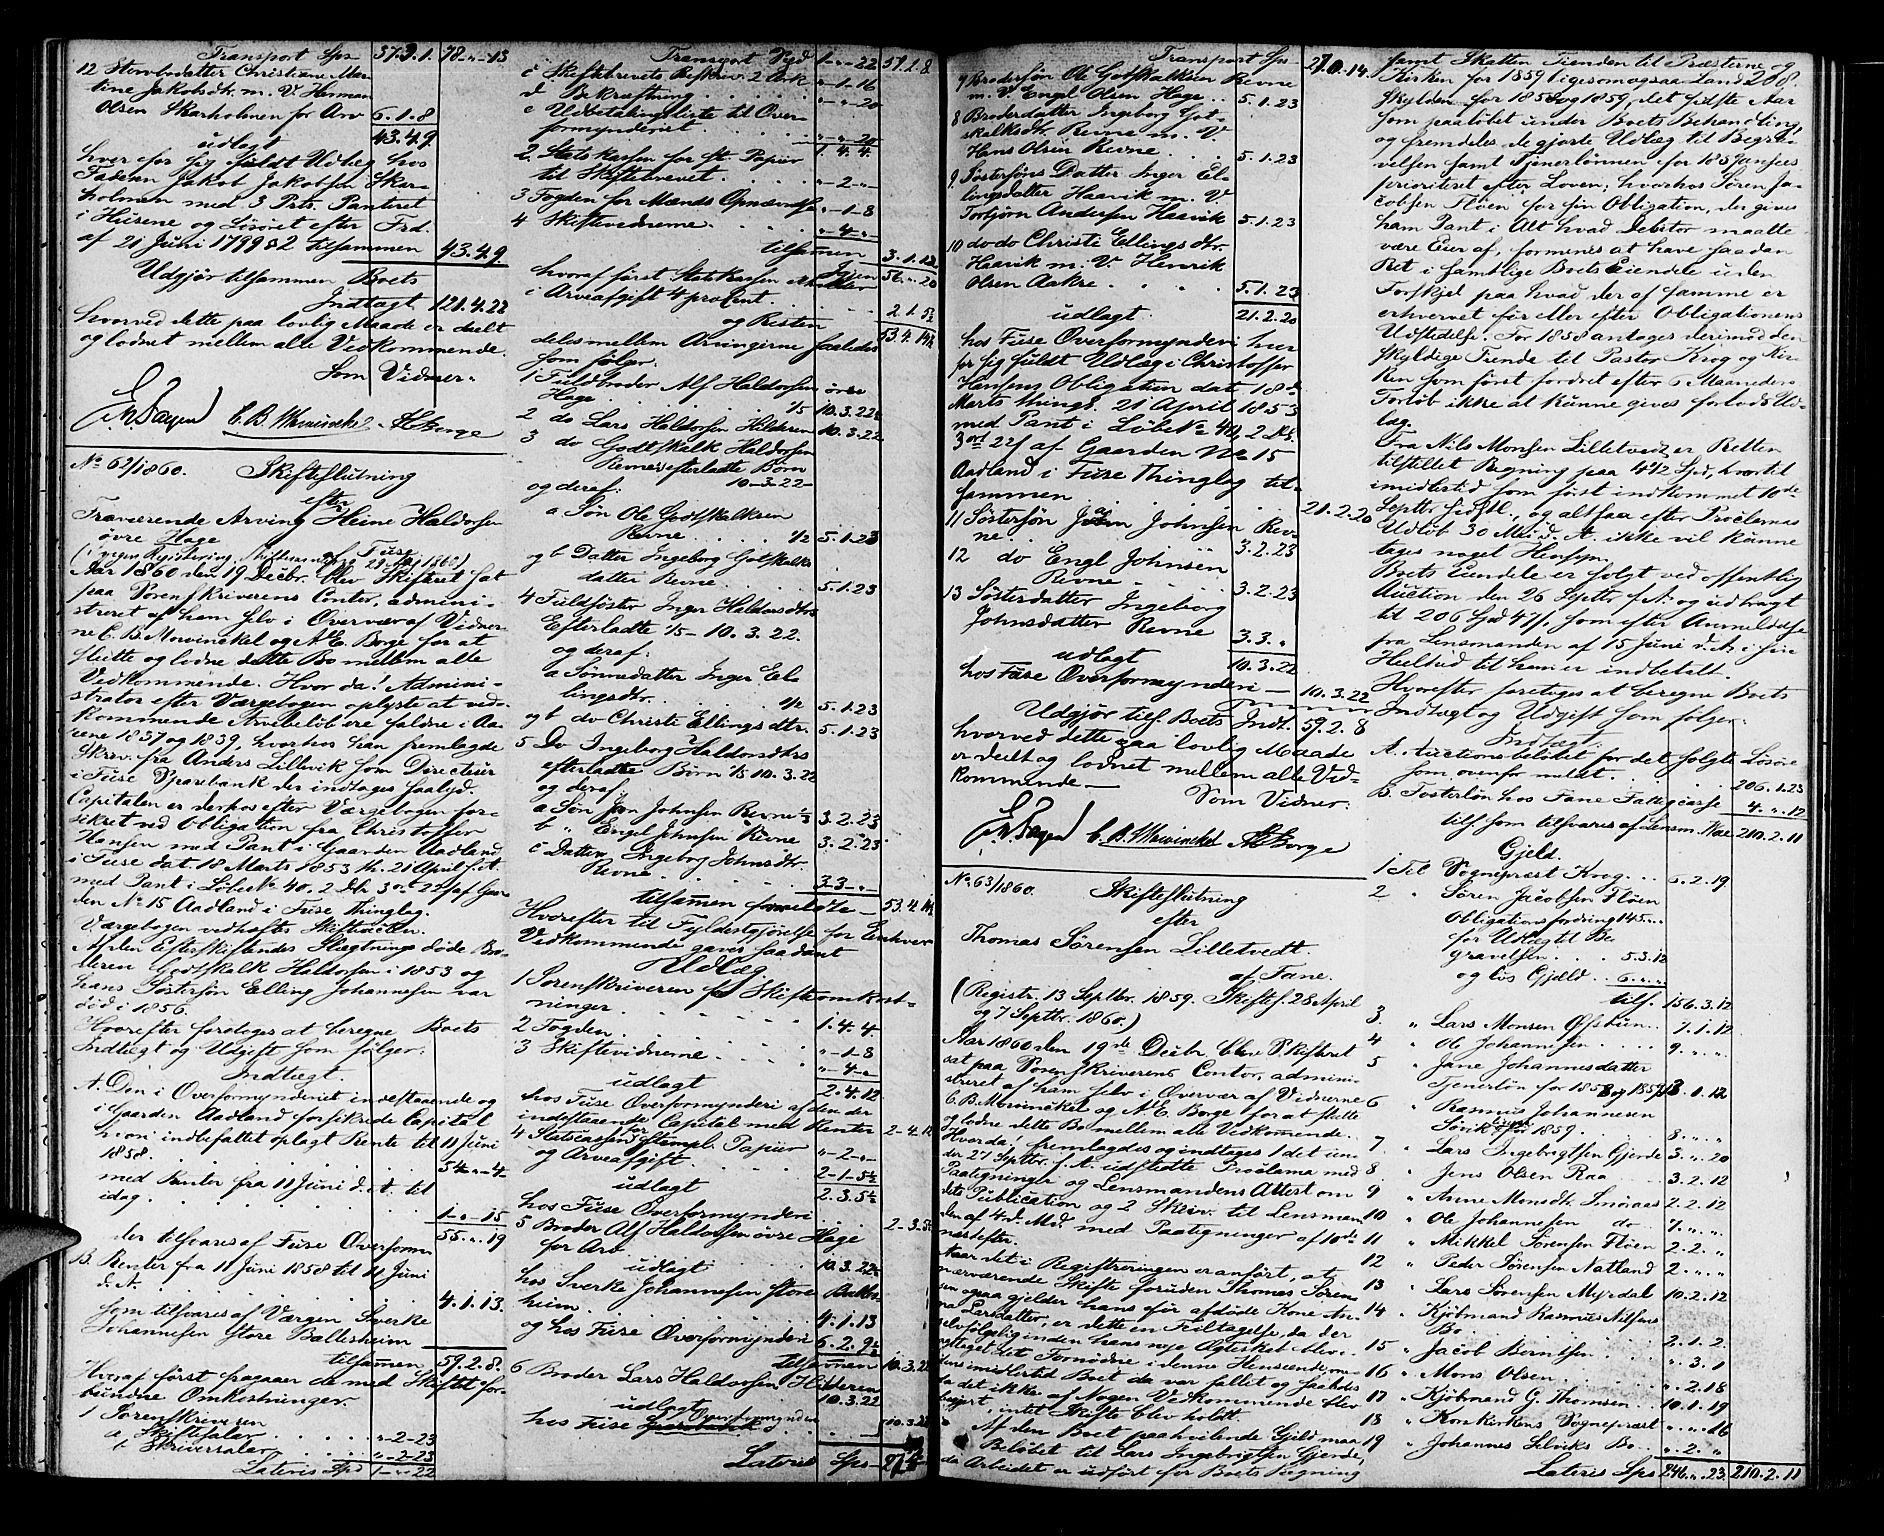 Transport Sps 37.3.1. 78-"-13
12 Stervbodatter Christiane Mar-
tine Jakobsdtr. m. V. Herman
Olsen Skarholmen for Arv 6.1.8
43.4.9
udlagt
hver for sig fuldt Udlæg hos
Faderen Jakob Jakobsen Skar-
holmen med 3 Prts. Panteret
i Husene og Løsøret efter Frd.
af 21 Juni 1799 § 2 tilsammen 43.4.9
Udgjør tilsammen Boets
Indtægt 121.4.22
hvorved dette paa lovlig Maade er deelt
og lodnet mellem alle Vedkommende.
Som Vidner:
C. B. Mowinckel A E Borge
No 62/1860. Skifteslutning
efter
Fraværende Arving Heine Haldorsen
øvre Hage
af Fuse
Aar 1860 den 19 Decbr. blev Skifteret sat
paa Sorenskriverens Contor, admini-
streret af ham selv i Overvær af Vidner-
ne C. B. Mowinckel og A. E. Borge for at
slutte og lodne dette Bo mellem alle
Vedkommende. Hvor da! Admini-
strator efter Værgebogen oplyste at ved-
kommende Arvebeløb ere faldne i Aa-
rene 1837 og 1839, hvorhos han fremlagde
Skriv. fra Anders Lillevik som Directeur
i Fuse Sparebank der indtages saalyd.
Capitalen er derhos efter Værgebogen for-
sikret ved Obligation fra Christoffer
Hansen med Pant i Gaarden Aadland
i Fuse dat. 18 Marts 1853 th. 21 April s. A.
med Pant i Løbe No 40. 2 Dlr 3 ort 22 s af Gaar-
den No 15 Aadland i Fuse Thinglag.
Værgebogen vedhæftes Skifteacten.
Af den Efterskiftendes Slægtninge døde Bro-
deren Godtskalk Haldorsen i 1853 og
hans Søstersøn Elling Johannesen var
død i 1856.
Hvorefter foretoges at beregne Boets
Indtægt og Udgift som følger:
Indtægt.
A. Den i Overformynderiet indestaaende og
i Gaarden Aadland forsikrede Capital
hvori indbefattet oplagt Rente til 11 Juni
1858. 54-"-4-
med Renter fra 11 Juni d. A. til
idag. 1-"-15
der tilsvares af Fuse Overform. 55.".19
B. Renter fra 11 Juni 1858 til 11 Juni
d. A. 4.1.13.
som tilsvares af Værgen Sverke
Johannesen store Ballesheim
tilsammen 59.2.8.
Hvoraf først fragaaer de med Skiftet for-
bundne Omkostninger.
1 Sorenskriveren
a Skiftesalær "-2-23
b Skriversalær "-2-23
Lateris Spd 1-"-22
Transport Spd 1-"-22 59.2.8
c Skiftebrevets Beskriv. 2 Ark "-1-16
d Bekræftning "-"-20
e Udbetalingsliste til Over-
formynderiet "-"-20
1.4.4.
2. Statskassen for st. Papiir
til Skiftebrevet "-2-"-
3 Fogden for Mænds Opnævnelse "-1-8
4 Skiftevidnerne "-4-"-
tilsammen 3.1.12
56.".20
hvoraf først Statskassen
i Arveafgift 4 procent 2 1. 5½
og Resten 53.4.14½
deles mellem Arvingerne saaledes
som følger.
1 Fuldbroder Alf Haldorsen øvre
Hage 1/5 10.3.22
2 do Lars Haldorsen Hilderen 10.3.22
3 do Godtskalk Haldorsen
Revnes efterladte Børn
10-3.22-
og deraf:
a Søn Ole Godtskalksen
Revne 1/2 5.1.23
og b Datter Ingeborg Gotskalks
datter Revne 5.1.23
4 Fuldsøster Inger Haldorsdtrs
Efterladte 1/5 - 10.3.22.
og deraf:
a Sønnedatter Inger El-
lingsdtr. 1/2 5.1.23
og b do Christi Ellingsdtr. 5.1.23
5 Do Ingeborg Haldorsdtrs
efterladte Børn 1/5 10.3.22
og deraf:
a Søn Jan Johnsen Revne 1/3 3.2.23
b " Engel Johnsen Revne 3.2.23
c Datter Ingeborg Johnsdtr.
Revne 3.3-"-
tilsammen formeldte 53.4.14½
Hvorefter til Fyldestgjørelse for Enhver
Vedkommende gaves saadant
Udlæg
1 Sorenskriveren for Skifteomkost-
ninger 1.4.4.
2 Fogden "-1-8
3 Skiftevidnerne "-4-"-
udlagt 2.4.12
hos Fuse Overformynderi af den der
indestaaende Capital med Renter 2-4.12
4 Statscassen for stempl. Papiir "-2-"-
og Arveafgift 2-1-5½
udlagt 2.3.5½
hos Fuse Overformynderi 2-3.5½
5 Broder Alf Haldorsen øvre Hage
for Arv 10.3.22
udlagt
hos Sverke Johannesen store Balle-
heim 4.1.13
og hos Fuse Overformynderi 6.2.9½
tilsammen 10.3.22
6 Broder Lars Haldorsen Hilderen
10.3.22
udlagt
hos Fuse Overformynderi 10.3.22
Lateris Sps
Transport Sps 27.0.14.
7 Brodersøn Ole Gotskalksen Revne
m. V. Engl Olsen Hage 5.1.23
8 Broderdatter Ingeborg Got-
skalksdtr. Revne m. V.
Hans Olsen Revne 5.1.23
9. Søstersøns Datter Inger El-
lingsdatter Haavik m. V.
Torbjørn Andersen Haavik 5.1.23
10 do do Christi Ellingsdtr.
Haavik m. V. Henrik
Olsen Aakre 5.1.23
udlagt 21.2.20
hos Fuse Overformynderi hver
for sig fuldt Udlæg i Christoffer
Hansens Obligation dat. 18de
Marts thingl. 21 April 1853
med Pant i Løbe No 40, 2 Dlr.
3 ort 22 s af Gaarden No 15
Aadland i Fuse Thinglag til-
sammen 21.2.20
11 Søstersøn Jan Johnsen Rev-
ne 3.2.23
12 do Engl Johnsen
Revne 3.2.23
13 Søsterdatter Ingeborg
Johnsdatter Revne 3.3."
udlagt 10.3.22
hos Fuse Overformynderi 10.3.22
Udgjør tils. Boets Indt. 59.2.8
hvorved dette paa lovlig Maade
er deelt og lodnet mellem alle Ved-
kommende. Som Vidner:
C. B. Mowinckel A E Borge
No 63/1860. Skifteslutning
efter
Thomas Sørensen Lilletvedt
af Fane.
(Registr. 13 Septbr. 1859. Skiftes. 28 April
og 7 Septbr. 1860.)
Aar 1860 den 19de Decbr. blev Skifteret
sat paa Sorenskriverens Contor, admini-
streret af ham selv i Overvær af Vidnerne
C. B. Mowinckel og A. E. Borge for at slutte
og lodne dette Bo mellem alle Vedkommende.
Hvor da! fremlagdes og indtages 1 det un-
der 27 Septbr. f. A. udstedte Proclama med
Paategninger og Lensmandens Attest om
dets Publication og 2 Skriv. til Lensman-
den af 4 d. Md. med Paategninger af 10de
næstefter.
Naar det i Registreringen er anført, at
nærværende Skifte foruden Thomas Søren-
sen ogsaa gjelder hans før afdøde Kone An-
na Larsdatter, er dette en Feiltagelse, da der
selvfølgelig inden hans nye Ægteskab blev i-
agttaget det Fornødne i denne Henseende, om-
endskjønt imidlertid Boet da var fallit og saaledes
da det ikke af Nogen Vedkommende blev
begjært, intet Skifte blev holdt.
Af den Boet paahvilende Gjeld maa
Beløbet til Lars Ingebrigtsen Gjerde,
da Arbeidet er udført for Boets Regning
samt Skatten Tienden til Præsterne og
Kirken for 1859 ligesom ogsaa Land- 208.
skylden for 1858 og 1859, det sidste Aar
som paaløbet under Boets Behandling
og fremdeles de gjorte Udlæg til Begra-
velsen samt Tjenerlønnen for 1859 ansees
prioriteret efter Loven; hvorhos Søren Ja-
cobsen Fløien for sin Obligation, der gives
ham Pant i Alt hvad Debitor maatte
være Eier af, formenes at have saadan
Ret i samtlige Boets Eiendele uden
Forskjel paa hvad der af samme er
erhvervet før eller efter Obligationens
Udstedelse. For 1858 antages derimod den
skyldige Tiende til Pastor Krog og Kir-
ken som først fordret efter 6 Maaneders
Forløb ikke at kunne gives forlods Ud-
læg.
Fra Nils Monsen Lilletvedt er Retten
tilstillet Regning paa 4½ Spd., hvortil
imidlertid som først indkommet 10de
Septbr. sidstl., og altsaa efter Proclamas
Udløb 30 Mai d. A. ikke vil kunne
tages noget Hensyn.
Boets Eiendele er solgt ved offentlig
Auction den 26 Septbr. f. A. og udbragt
til 206 Spd 47 s, som efter Anmeldelse
fra Lensmanden af 15 Juni d. A. i sin
Heelhed til ham er indbetalt.
Hvorefter foretoges at beregne Boets
Indtægt og Udgift som følger:
Indtægt.
A. Auctionsbeløbet for det solgte Løsøre
som ovenfor meldt 206.1.23
B. Tosterløn hos Fane Fattigcasse 4.".12
tils. som tilsvares af Lensm. Nae 210.2.11
Gjeld.
1 Til Sognepræst Krog 6.2.19
2 " Søren Jacobsen Fløien
Obligationsfordring 145.".
for Udlæg til Be-
gravelsen 5.3.12
og løs Gjæld 6.".
tils. 156.3.12
3. " Lars Monsen Øfstun 7.1.12
4 " Ole Johannesen 9.".".
5 " Jane Johannesdatter
Tjenerløn for 1858 og 1859 13.1.12
6 " Rasmus Johannesen
Søvik for 1859. 8.".".
7. " Lars Ingebrigtsen Gjerde 3.".20
8. " Jens Olsen Raa 3.2.12
9 " Anne Monsdtr. Smøraas 2.2.12
10 " Ole Johannesen do 7.".".
11 " Mikkel Sørensen Fløien 2.2."
12 " Peder Sørensen Natland 2.".".
13 " Lars Sørensen Myrdal 10.2.12
14 " Kjøbmand Rasmus Nilsens
Bo 2.1.2.
15 " Jacob Berntsen ".3.1
16 " Mons Olsen ".2.18
17 " Kjøbmand G. Thomsen 10.1.19
18 " Korskirkens Sognepræst ".".16
19 " Johannes Lilviks Bo ".2."
Lateris Sps 246.".23. 210.2.11